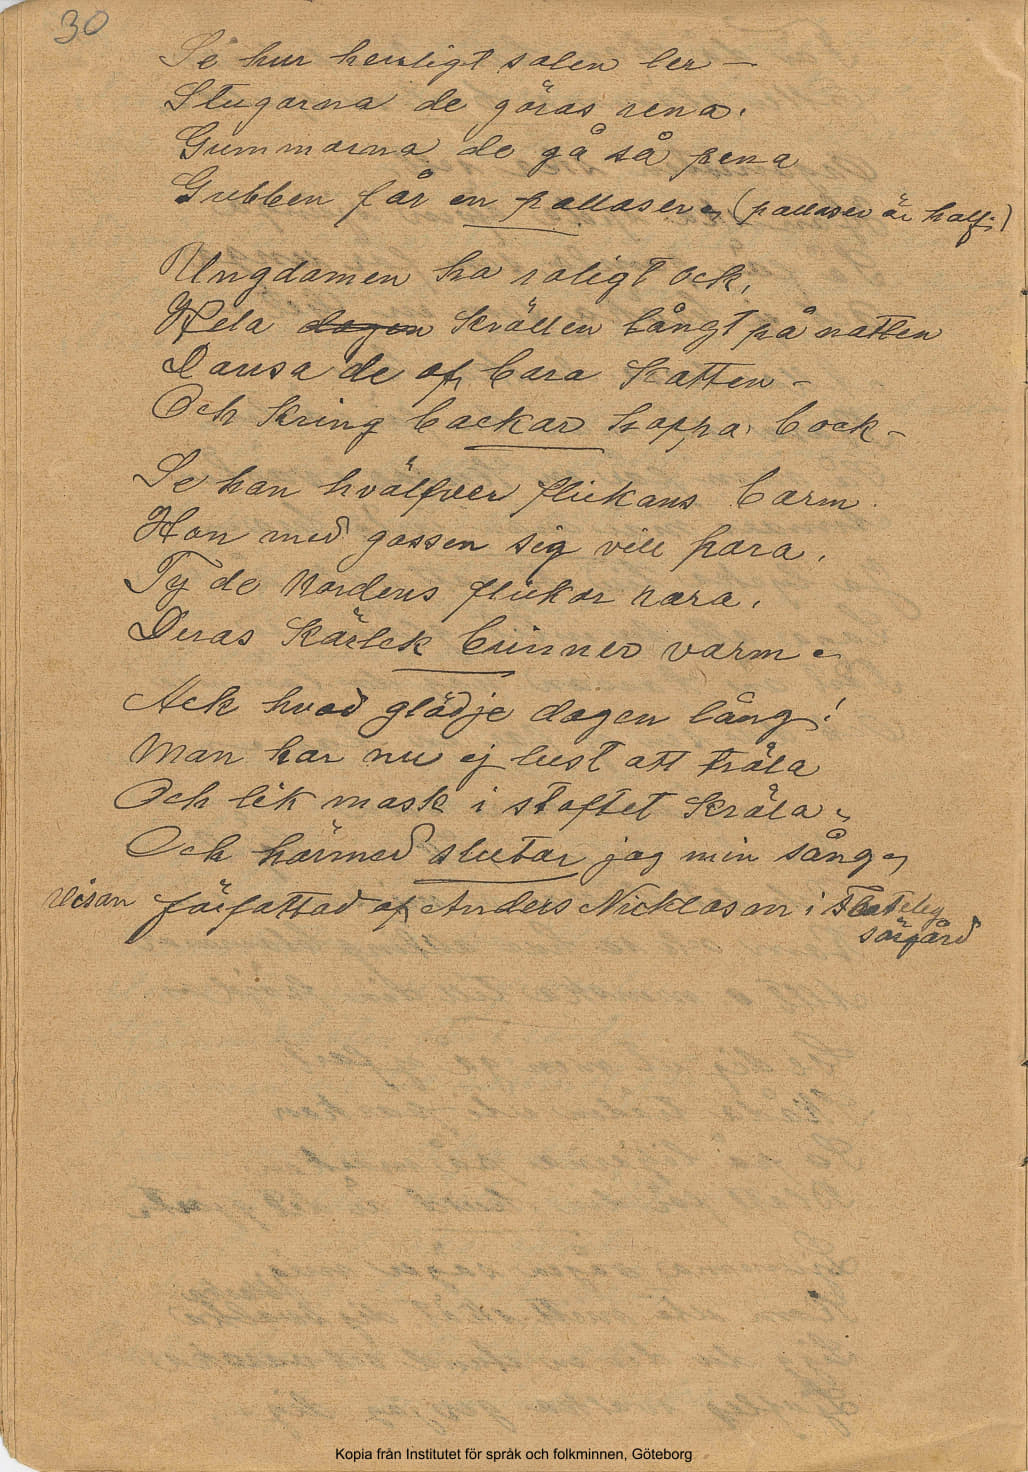 30
Se hur herrligt solen ler –
Stugorna de göras rena.
Gummorna de gå så pena
Gubben får en pallaser, (pallaser är half:)
Ungdomen ha roligt ock,
Hela dagen kvällen långt på natten
Dansa de af bara katten –
Och kring backar hoppa bock –
Se han hvälfver flickans barm
Hon med gossen sig vill para,
Ty de Nordens flickor rara,
Deras kärlek brinner varm.
Ack hvad glädje dagen lång!
Man har nu ej lust att träla
Och lik mask i stoftet kräla,
Och härmed slutar jag min sång,
visan författad af Anders Nicklason i
sörgård
Kopia från Institutet för språk och folkminnen, Göteborg